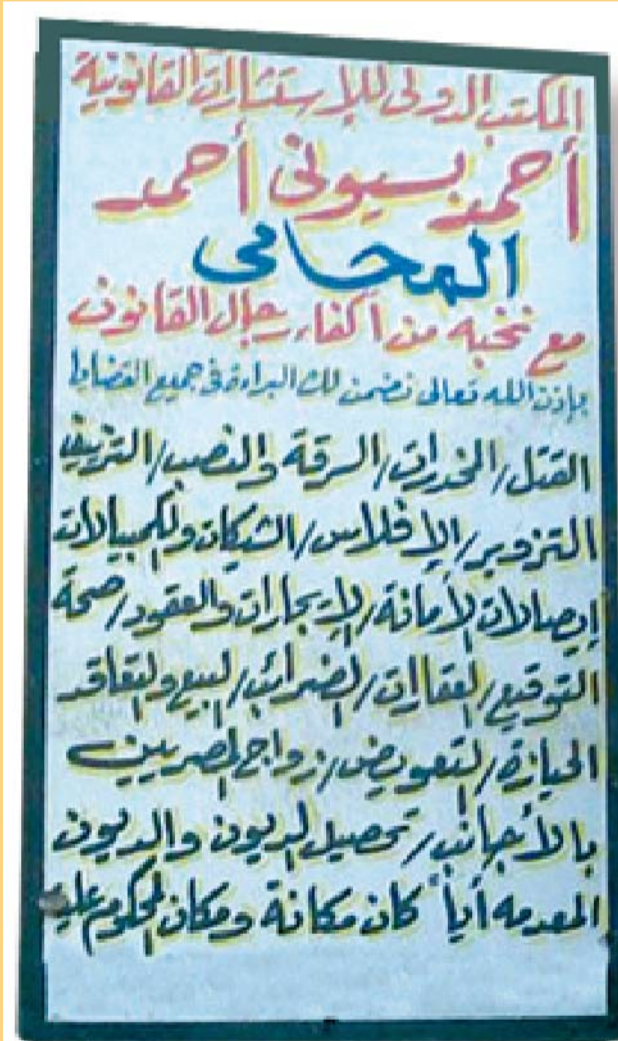 المكتب الدولى للإستشارات القانونية
أحمد بسيونى أحمد
المحامى
مع نخبه من أكفاء رجال القانون
بإذن الله تعالى نضمن لك البراءة فى جميع القضايا
القتل/المخدرات/السرقة والنصب/التزييف
التزوير/الإفلاس/الشيكات والكمبيالات
إيصالات الأمانة/الإيجارات والعقود/صحة
التوقيع/العقارات/الضرائب/البيع والتعاقد
الحيازة/التعويض/زواج المصريين
بالأجانب/تحصيل الديون والديون
المعدمه أياً كان مكانة ومكان المحكوم عليه